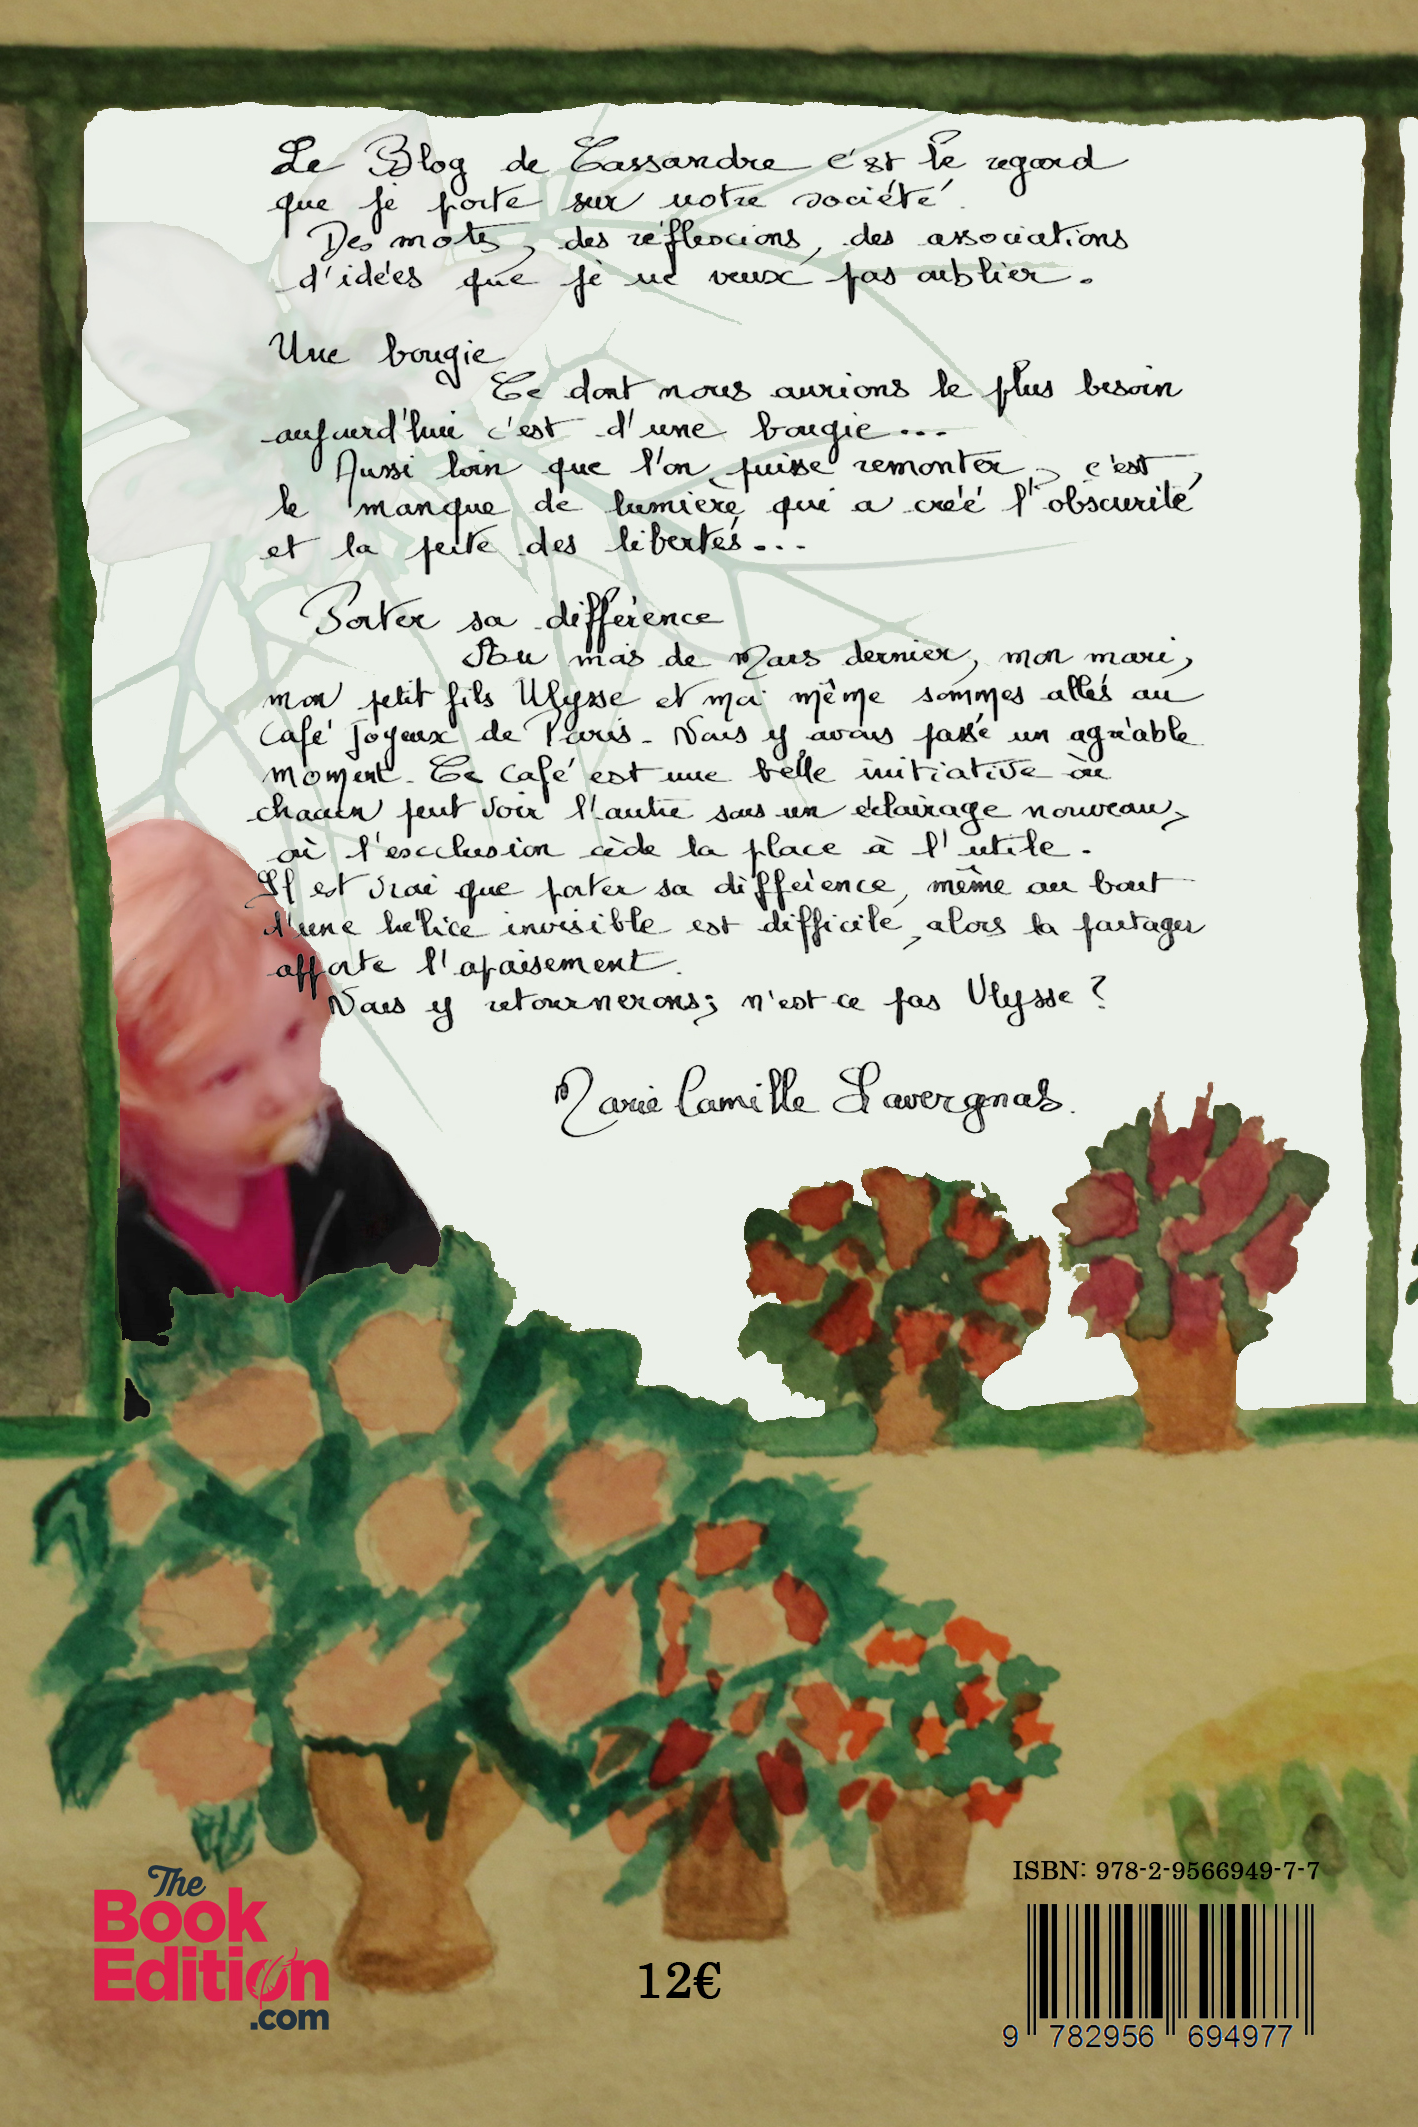 Le Blog de Cassandre c'est le regard
que je porte sur notre société.
Des mots, des réflexions, des associations
d'idées que je ne veux pas oublier.
Une bougie
Ce dont nous aurions le plus besoin
aujourd'hui c'est d'une bougie...
Aussi loin que l'on puisse remonter, c'est
le manque de lumière qui a créé l'obscurité
et la perte des libertés...
Porter sa différence
Au mois de Mars dernier, mon mari,
mon petit fils Ulysse et moi même sommes allés au
Café Joyeux de Paris. Nous y avons passé un agréable
moment. Ce Café est une belle initiative où
chacun peut voir l'autre sous un éclairage nouveau,
où l'exclusion cède la place à l'utile.
Il est vrai que porter sa différence, même au bout
d'une hélice invisible est difficile, alors la partager
apporte l'apaisement.
Nous y retournerons; n'est-ce pas Ulysse ?
Marie Camille Lavergnas.
The
Book
Edition
.com
12€
ISBN: 978-2-9566949-7-7
9 782956 694977